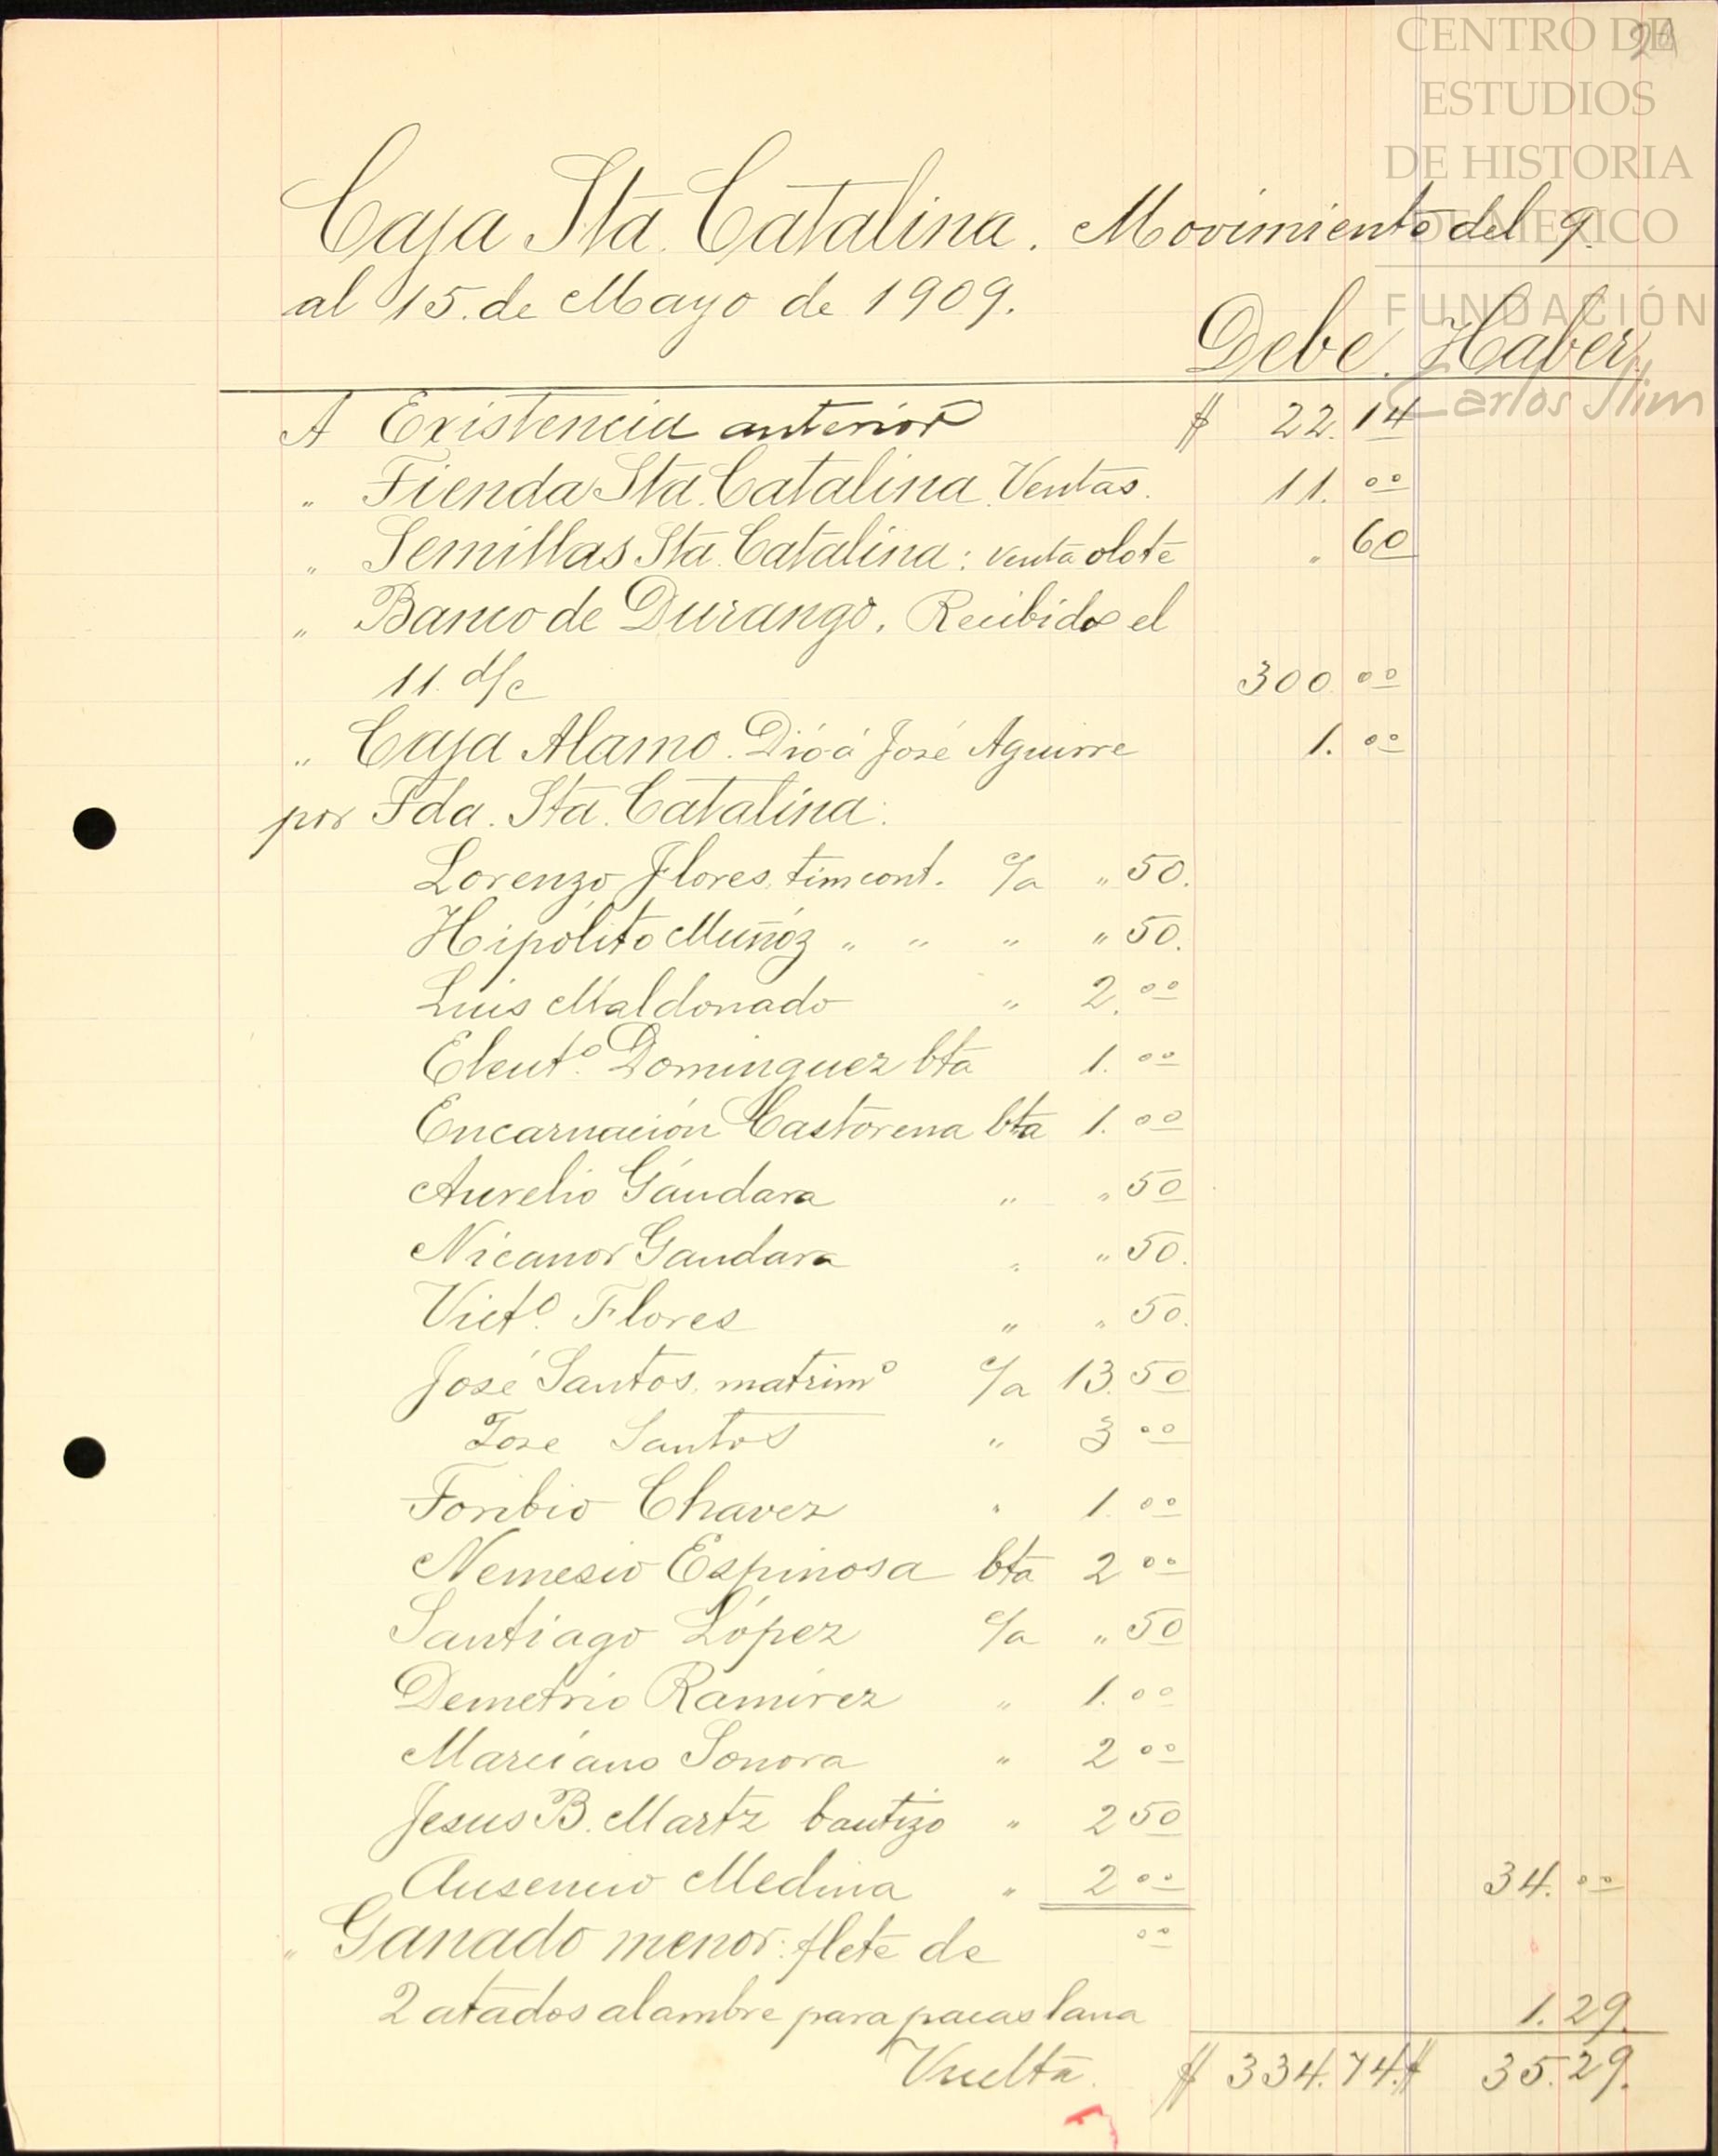 CENTRO DE
ESTUDIOS
DE HISTORIA
DE MEXICO
FUNDACIÓN
Carlos Slim
Caja Sta. Catalina. Movimiento del 9.
al 15. de Mayo de 1909.
Debe. Haber.
A Existencia anterior $ 22.14
" Tienda Sta. Catalina. Ventas. 11. 00
" Semillas Sta. Catalina: venta olote " 60
" Banco de Durango. Recibidos el
11. d/c 300 00
" Caja Alamo. Dió á José Aguirre 1. 00
por Fda. Sta. Catalina:
Lorenzo Flores, tim cont. c/a " 50.
Hipólito Muñóz " " " " 50.
Luis Maldonado " 2. 00
Eleut.º Dominguez bta 1. 00
Encarnación Castorena bta 1. 00
Aurelio Gándara " " 50
Nicanor Gandara " " 50.
Vict.º Flores " " 50.
José Santos, matrimº c/a 13. 50
Jose Santos " 3 00
Toribio Chavez " 1 00
Nemesio Espinosa bta 2 00
Santiago López c/a " 50
Demetrio Ramírez " 1. 00
Marciano Sonora " 2 00
Jesus B. Martz bautizo " 2 50
Ausencio Medina " 2 00 34. 00
" Ganado menor: flete de 00
2 atados alambre para pacas lana 1.29.
Vuelta. $ 334.74. $ 35.29.